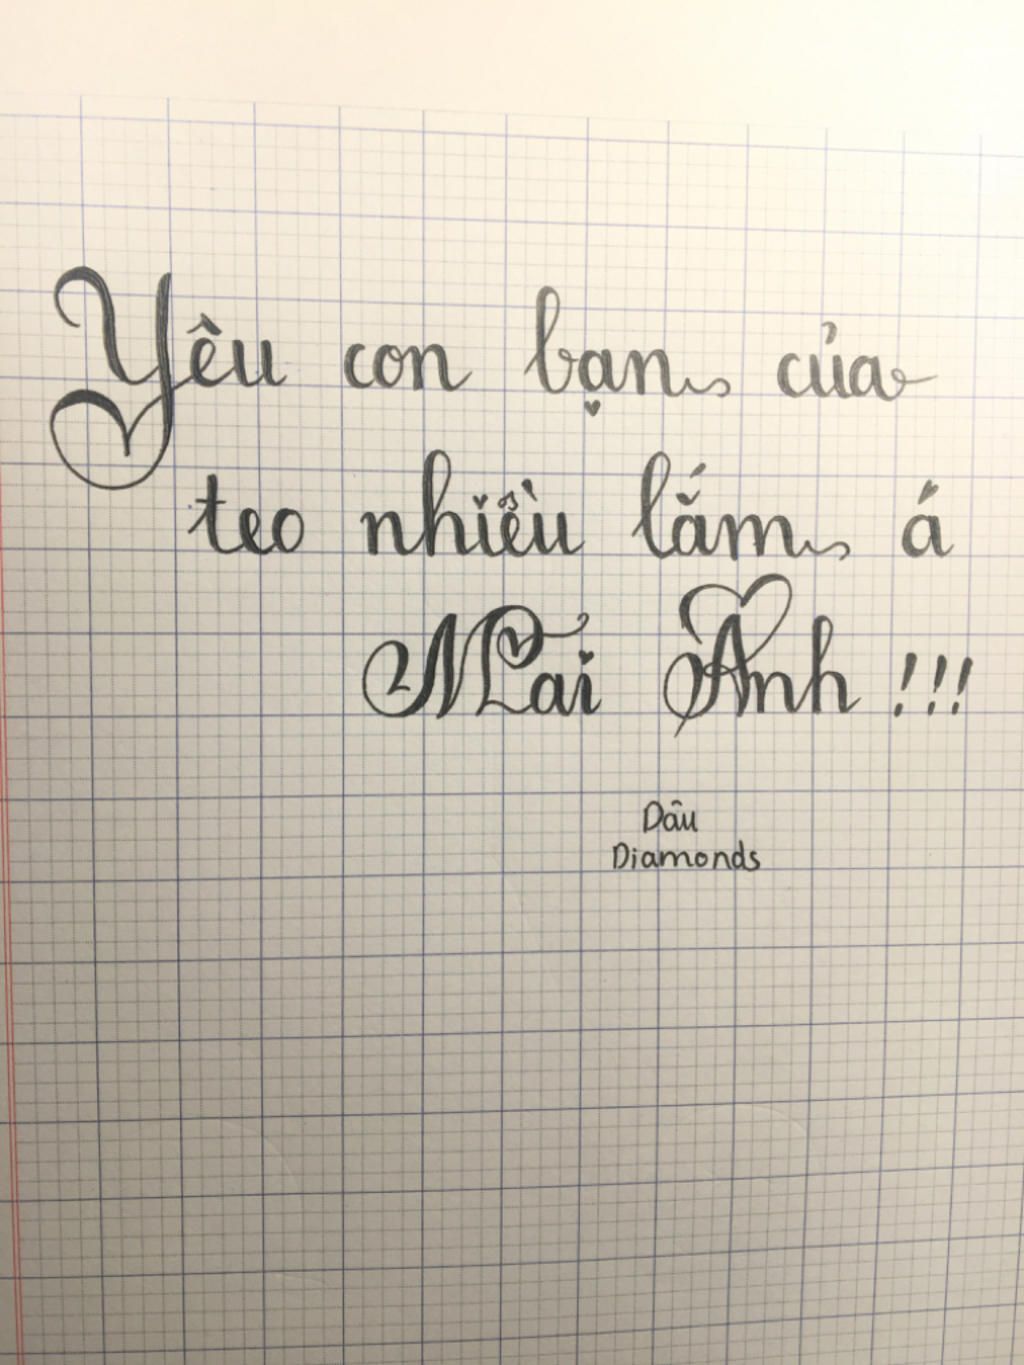 Yêu con bạn của
teo nhiều lắm á
Mai Anh !!!
Dâu
Diamonds